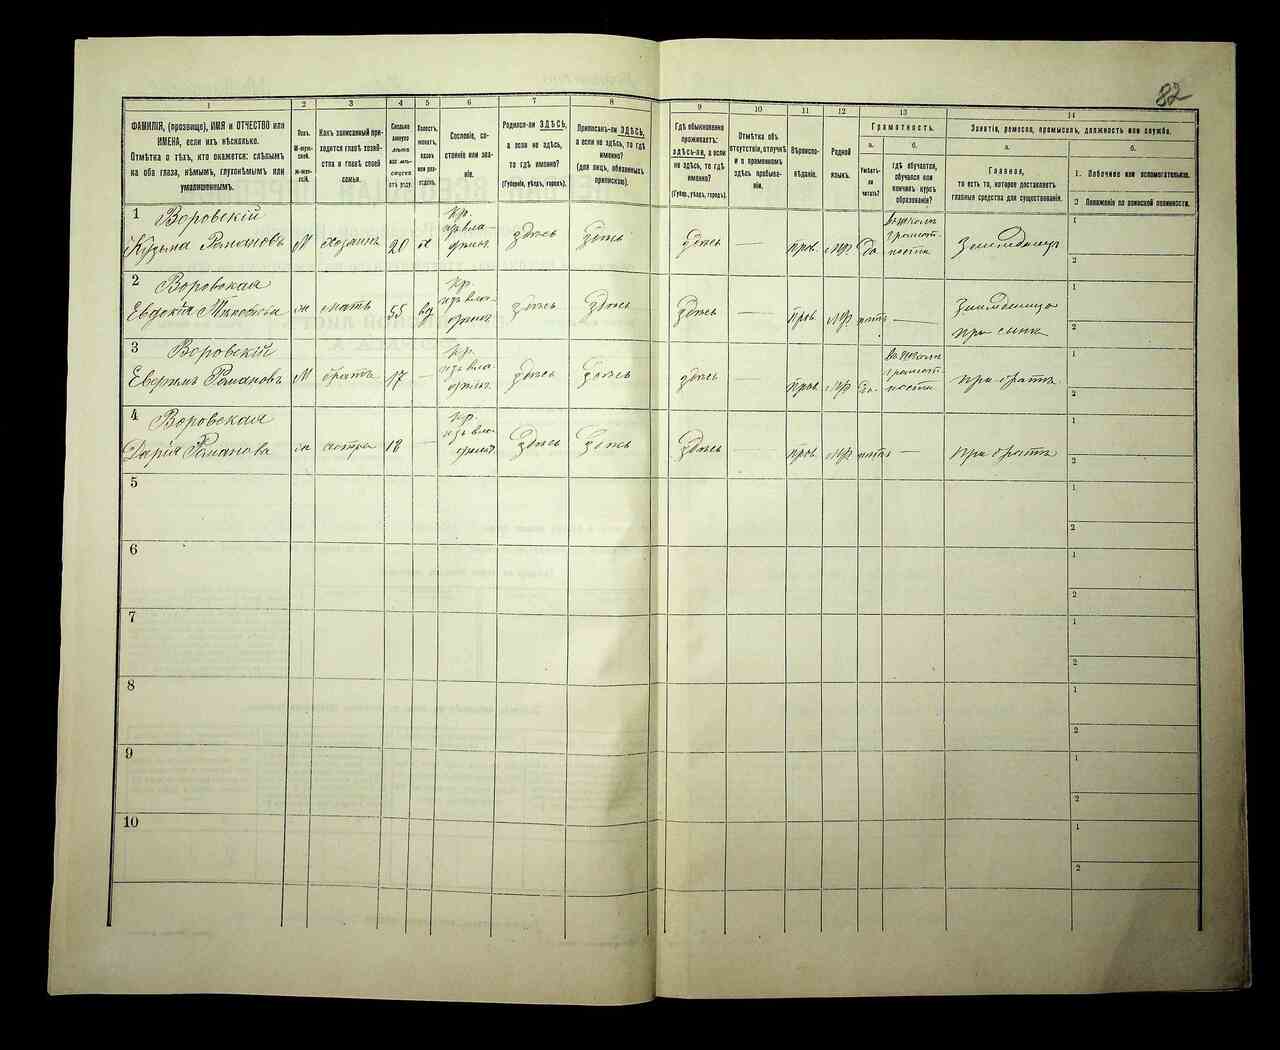 82
1 2 3 4 5 6 7 8 9 10 11 12 13 14
ФАМИЛІЯ, (прозвище), ИМЯ и ОТЧЕСТВО или
ИМЕНА, если ихъ нѣсколько.
Отмѣтка о тѣхъ, кто окажется: слѣпымъ
на оба глаза, нѣмымъ, глухонѣмымъ или
умалишеннымъ.
Полъ.
М-мужской.
Ж-женскій.
Какъ записанный приходится
главѣ хозяйства
и главѣ своей
семьи.
Сколько
минуло
лѣтъ
отъ роду.
Холостъ,
женатъ,
вдовъ
или разведенъ.
Сословіе, состояніе
или званіе.
Родился-ли ЗДѢСЬ,
а если не здѣсь,
то гдѣ именно?
(Губернія, уѣздъ, городъ).
Приписанъ-ли ЗДѢСЬ,
а если не здѣсь, то гдѣ
именно?
(для лицъ, обязанныхъ
припискою).
Гдѣ обыкновенно
проживаетъ:
здѣсь-ли, а если
не здѣсь, то гдѣ
именно?
(Губер., уѣздъ, городъ).
Отмѣтка объ
отсутствіи, отлучкѣ
и о временномъ
здѣсь пребываніи.
Вѣроисповѣданіе.
Родной
языкъ.
Грамотность.
а.
Умѣетъ-ли
читать?
б.
гдѣ обучается,
обучался или
кончилъ курсъ
образованія?
Занятіе, ремесло, промыселъ, должность или служба.
а.
Главное,
то есть то, которое доставляетъ
главныя средства для существованія.
б.
1. Побочное или вспомогательное.
2. Положеніе по воинской повинности.
1 Воровскій
Кузьма Романовъ М хозяинъ 20 х кр. изъ влад. здѣсь здѣсь здѣсь — прав. да въ школѣ грамотности Земледѣлецъ 1 2
2 Воровская
Евдокія ж мать 55 вд кр. изъ влад. здѣсь здѣсь здѣсь — прав. нѣтъ — при сынѣ 1 2
3 Воровскій
Романовъ М братъ 17 — кр. изъ влад. здѣсь здѣсь здѣсь — прав. да въ школѣ грамотности при братѣ 1 2
4 Воровская
Дарія Романова ж сестра 18 — кр. изъ влад. здѣсь здѣсь здѣсь — прав. нѣтъ — при братѣ 1 2
5 1 2
6 1 2
7 1 2
8 1 2
9 1 2
10 1 2